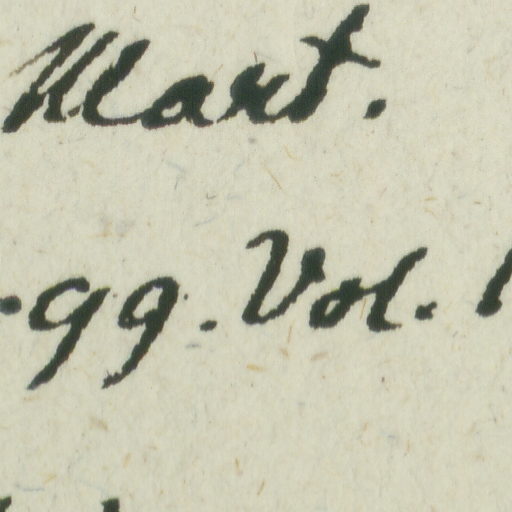 Mart.
-99. Vol. 1